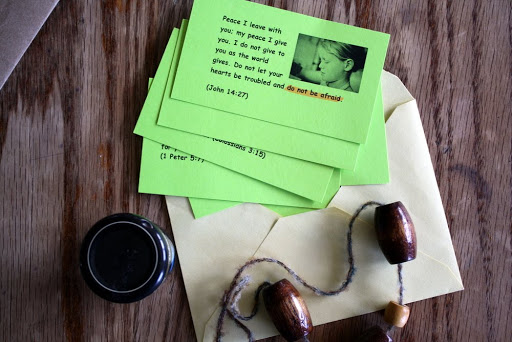 Peace I leave with
you; my peace I give
you. I do not give to
you as the world
gives. Do not let your
hearts be troubled and do not be afraid.
(John 14:27)
(Colossians 3:15)
for y
(1 Peter 5:7)